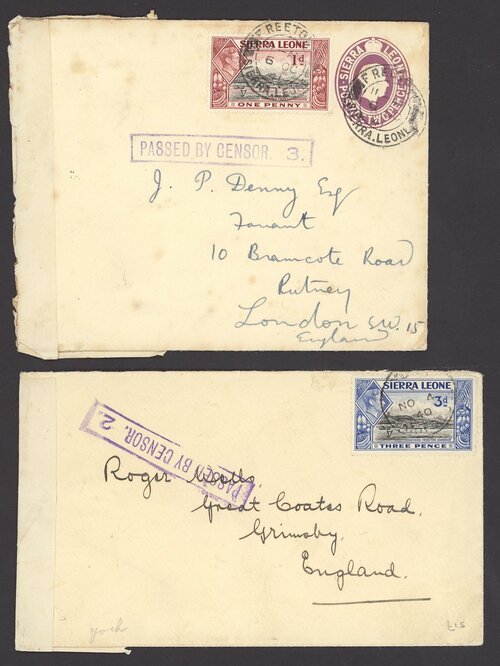 SIERRA LEONE
1d
ONE PENNY
SIERRA LEONE
POSTAGE TWO PENCE
FREETOWN
SIERRA.LEONE
PASSED BY CENSOR. 3.
J. P. Denny Esq
10 Bramcote Road
Putney
London S.W. 15
England
SIERRA LEONE
3d
THREE PENCE
NO 4
40
PASSED BY CENSOR. 2.
Roger Wells
Great Coates Road,
Grimsby,
England.